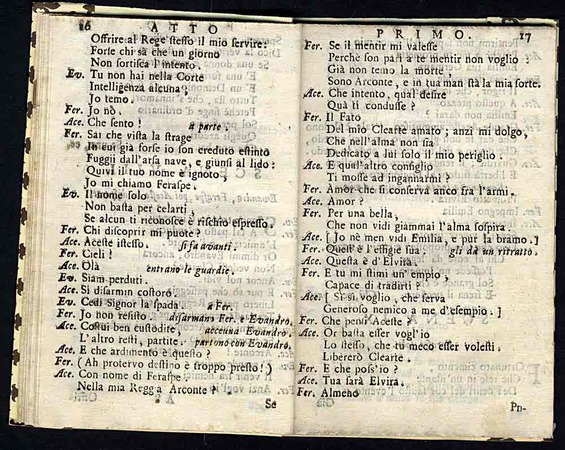 16 ATTO
Offrire al Rege stesso il mio servire:
Forse chi sà che un giorno
Non sortisca l'intento.
Ev. Tu non hai nella Corte
Intelligenza alcuna?
Jo temo.
Fer. Jo nò.
Ace. Che sento! a parte.
Fer. Sai che vista la strage
In cui già forse io son creduto estinto
Fuggii dall'arsa nave, e giunsi al lido:
Quivi il tuo nome è ignoto.
Jo mi chiamo Feraspe.
Ev. Il nome solo
Non basta per celarti,
Se alcun ti riconosce è rischio espresso.
Fer. Chi discoprir mi puote?
Ace. Aceste istesso. si fa avanti.
Fer. Cieli!
Ace. Olà entrano le guardie.
Ev. Siam perduti.
Ace. Si disarmin costoro.
Ev. Cedi Signor la spada. a Fer.
Fer. Jo non resisto. disarmano Fer. e Evandro.
Ace. Costui ben custodite, accenna Evandro.
L'altro resti, partite. partono con Evandro.
Ace. E che ardimento è questo?
Fer. (Ah protervo destino è troppo presto!)
Ace. Con nome di Feraspe
Nella mia Reggia Arconte?
Se
PRIMO. 17
Fer. Se il mentir mi valesse
Perche son pari a te mentir non voglio:
Già non temo la morte,
Sono Arconte, e in tua man stà la mia sorte.
Ace. Che intento, qual desire
Quà ti condusse?
Fer. Il Fato
Del mio Clearte amato; anzi mi dolgo,
Che nell'alma non sia
Dedicato a lui solo il mio periglio.
Ace. E qual'altro consiglio
Ti mosse ad ingannarmi?
Fer. Amor che si conserva anco fra l'armi.
Ace. Amor?
Fer. Per una bella,
Che non vidi giammai l'alma sospira.
Ace. [Jo nè men vidi Emilia, e pur la bramo.]
Fer. Quest' è l'effigie sua. gli dà un ritratto.
Ace. Questa è d'Elvira.
Fer. E tu mi stimi un'empio,
Capace di tradirti?
Ace. [Si si voglio, che serva
Generoso nemico a me d'esempio.]
Fer. Che pensi Aceste?
Ace. Or basta esser vogl'io
Lo stesso, che tu meco esser volesti.
Libererò Clearte.
Fer. E che poss'io?
Ace. Tua sarà Elvira.
Fer. Almeno